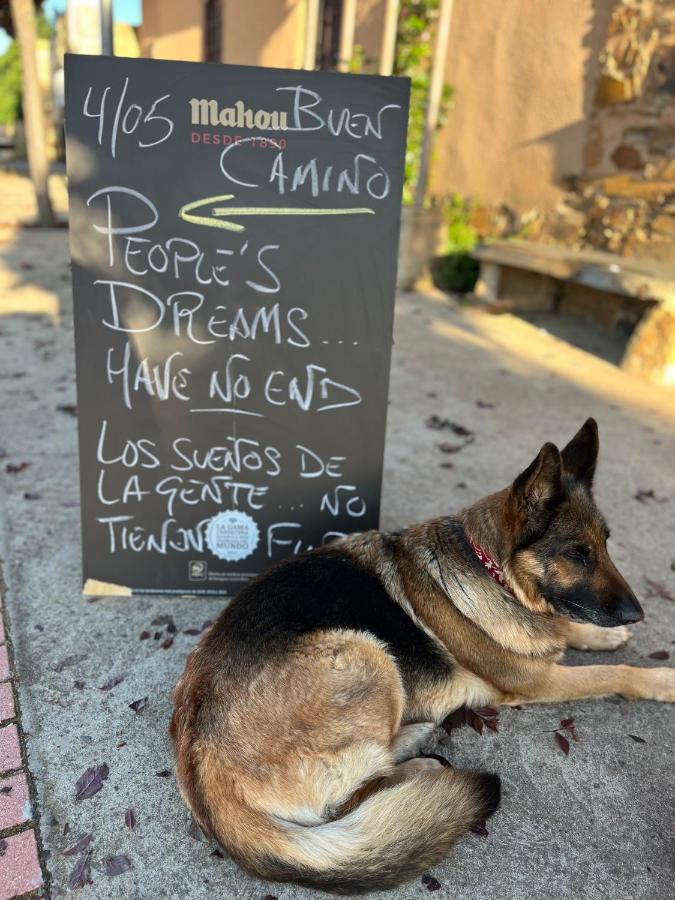 4/05 Mahou BUEN
DESDE 1890
CAMIÑO
PEOPLE'S
DREAMS...
HAVE NO END
LOS SUEÑOS DE
LA GENTE... NO
TIENEN
LA GAMA
CERVECERA
DEL MUNDO